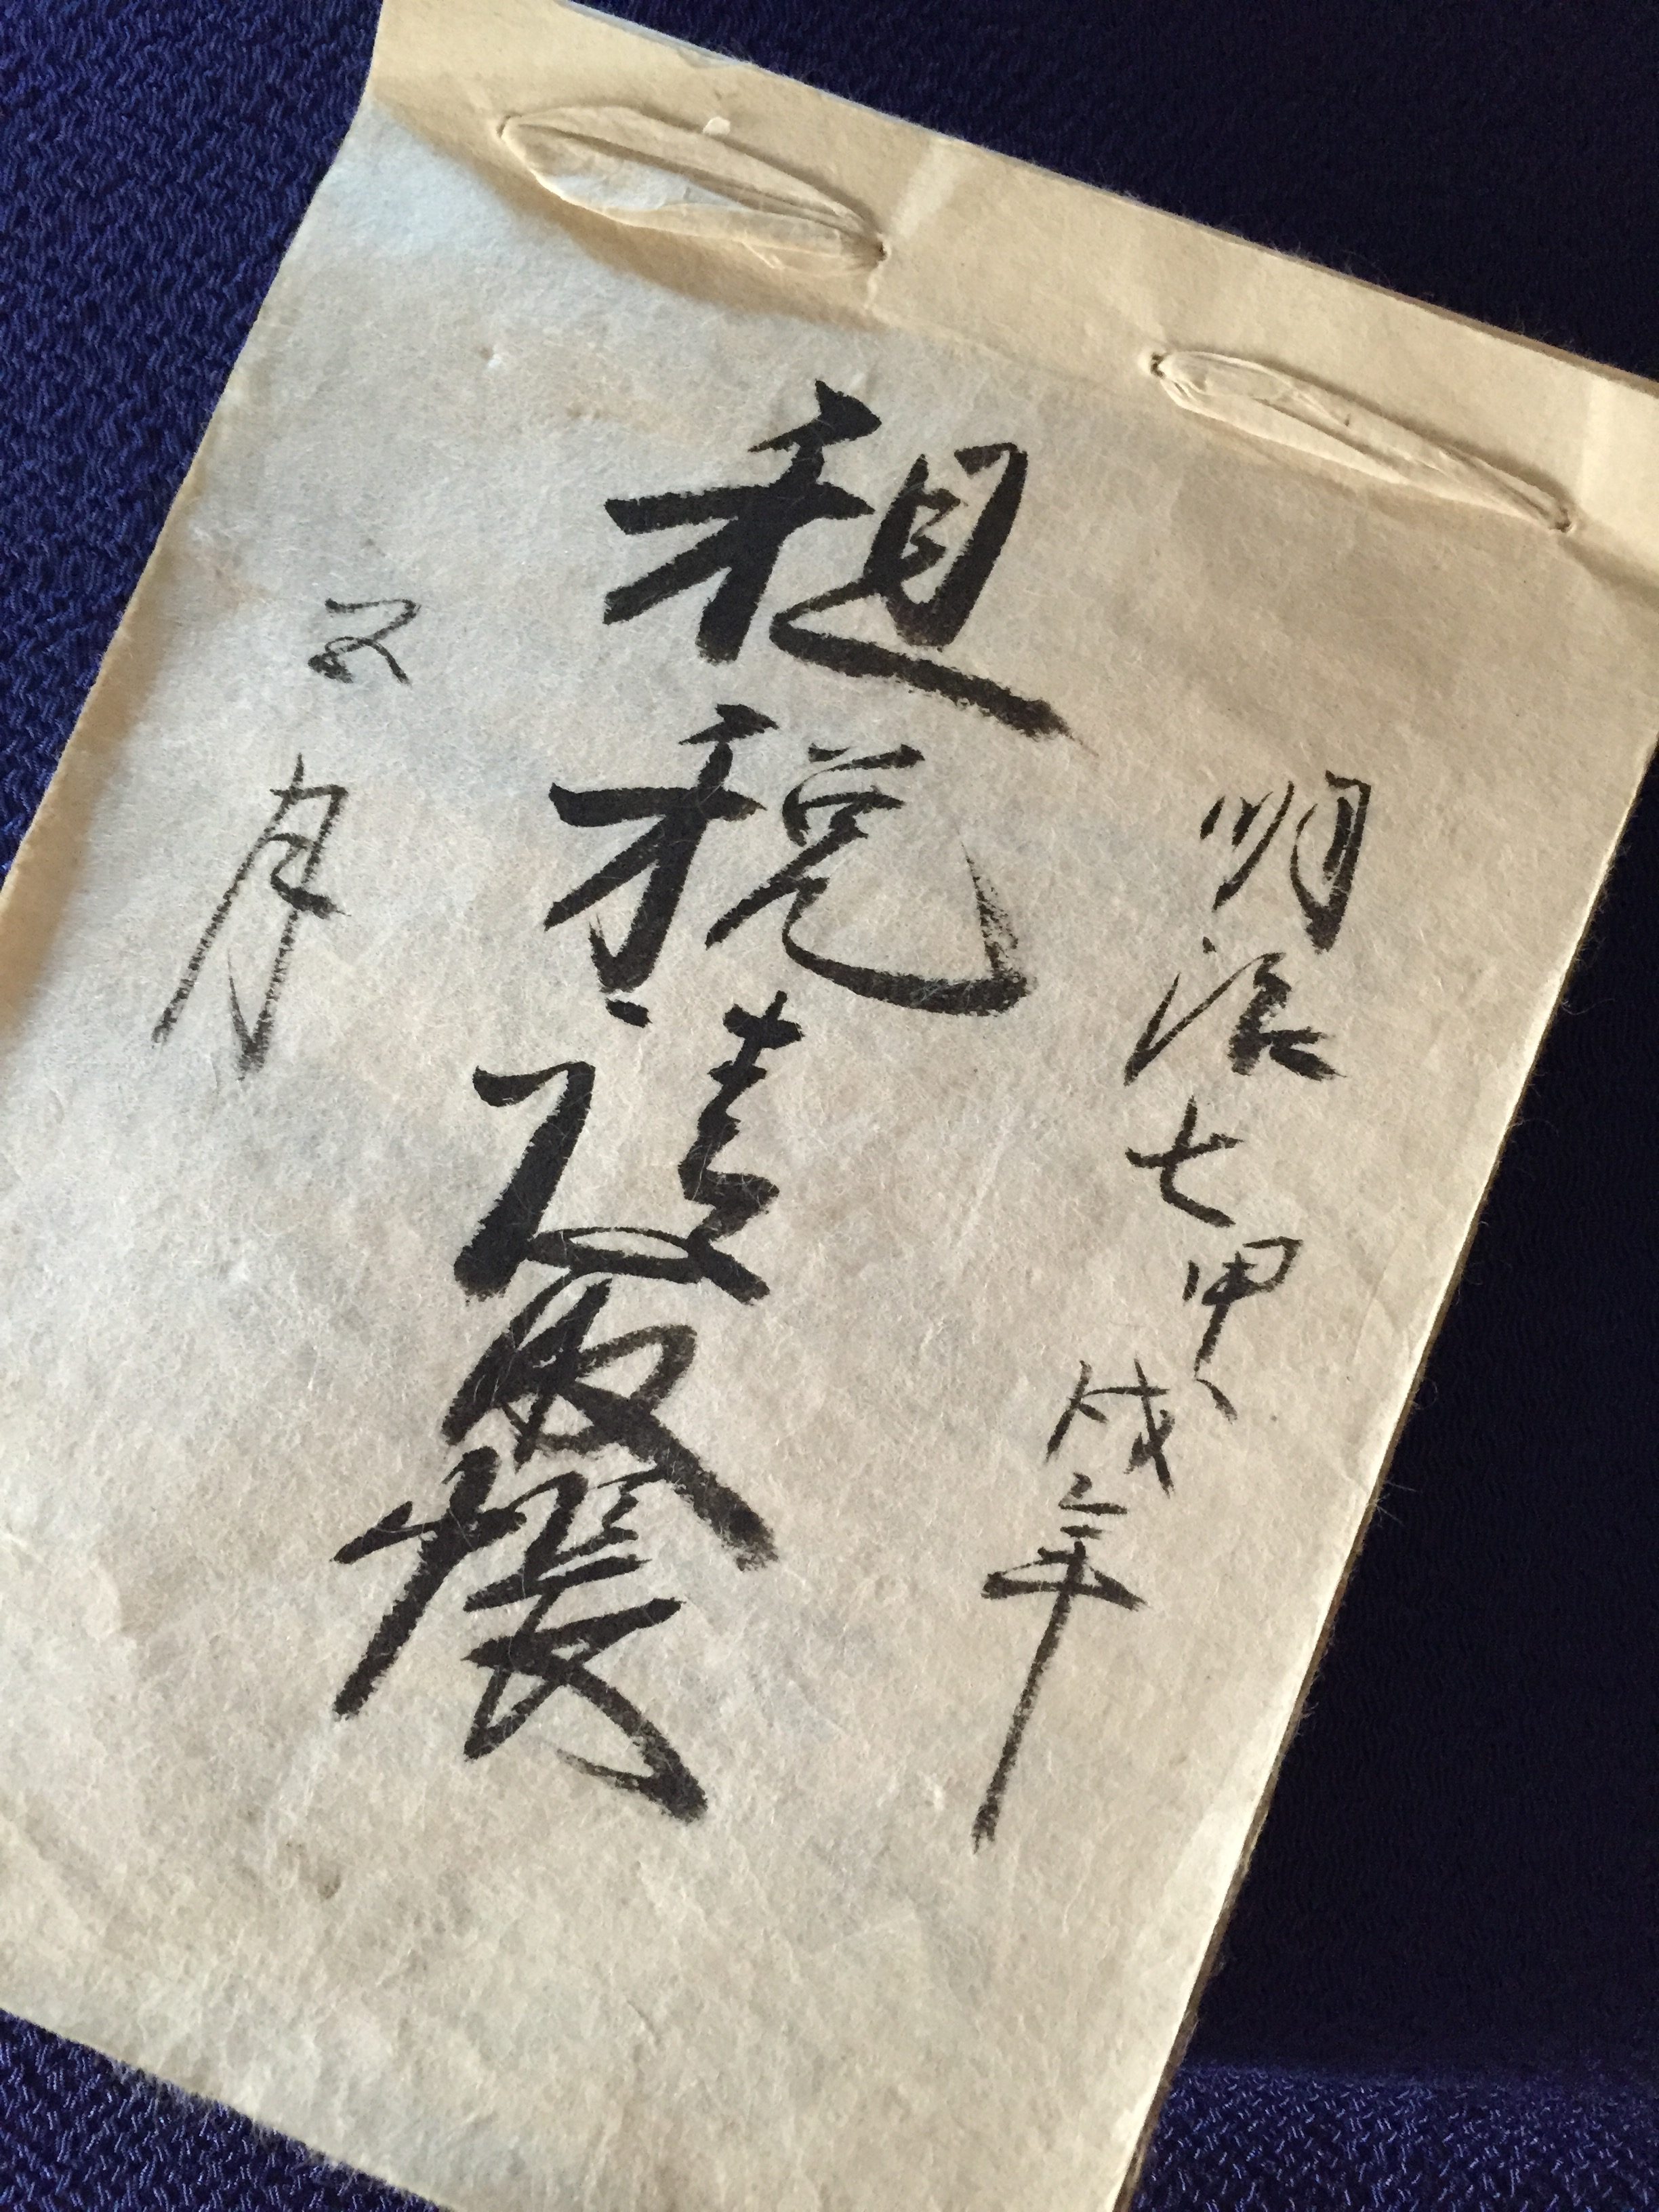 明治七甲戌年
租税請取帳
五月